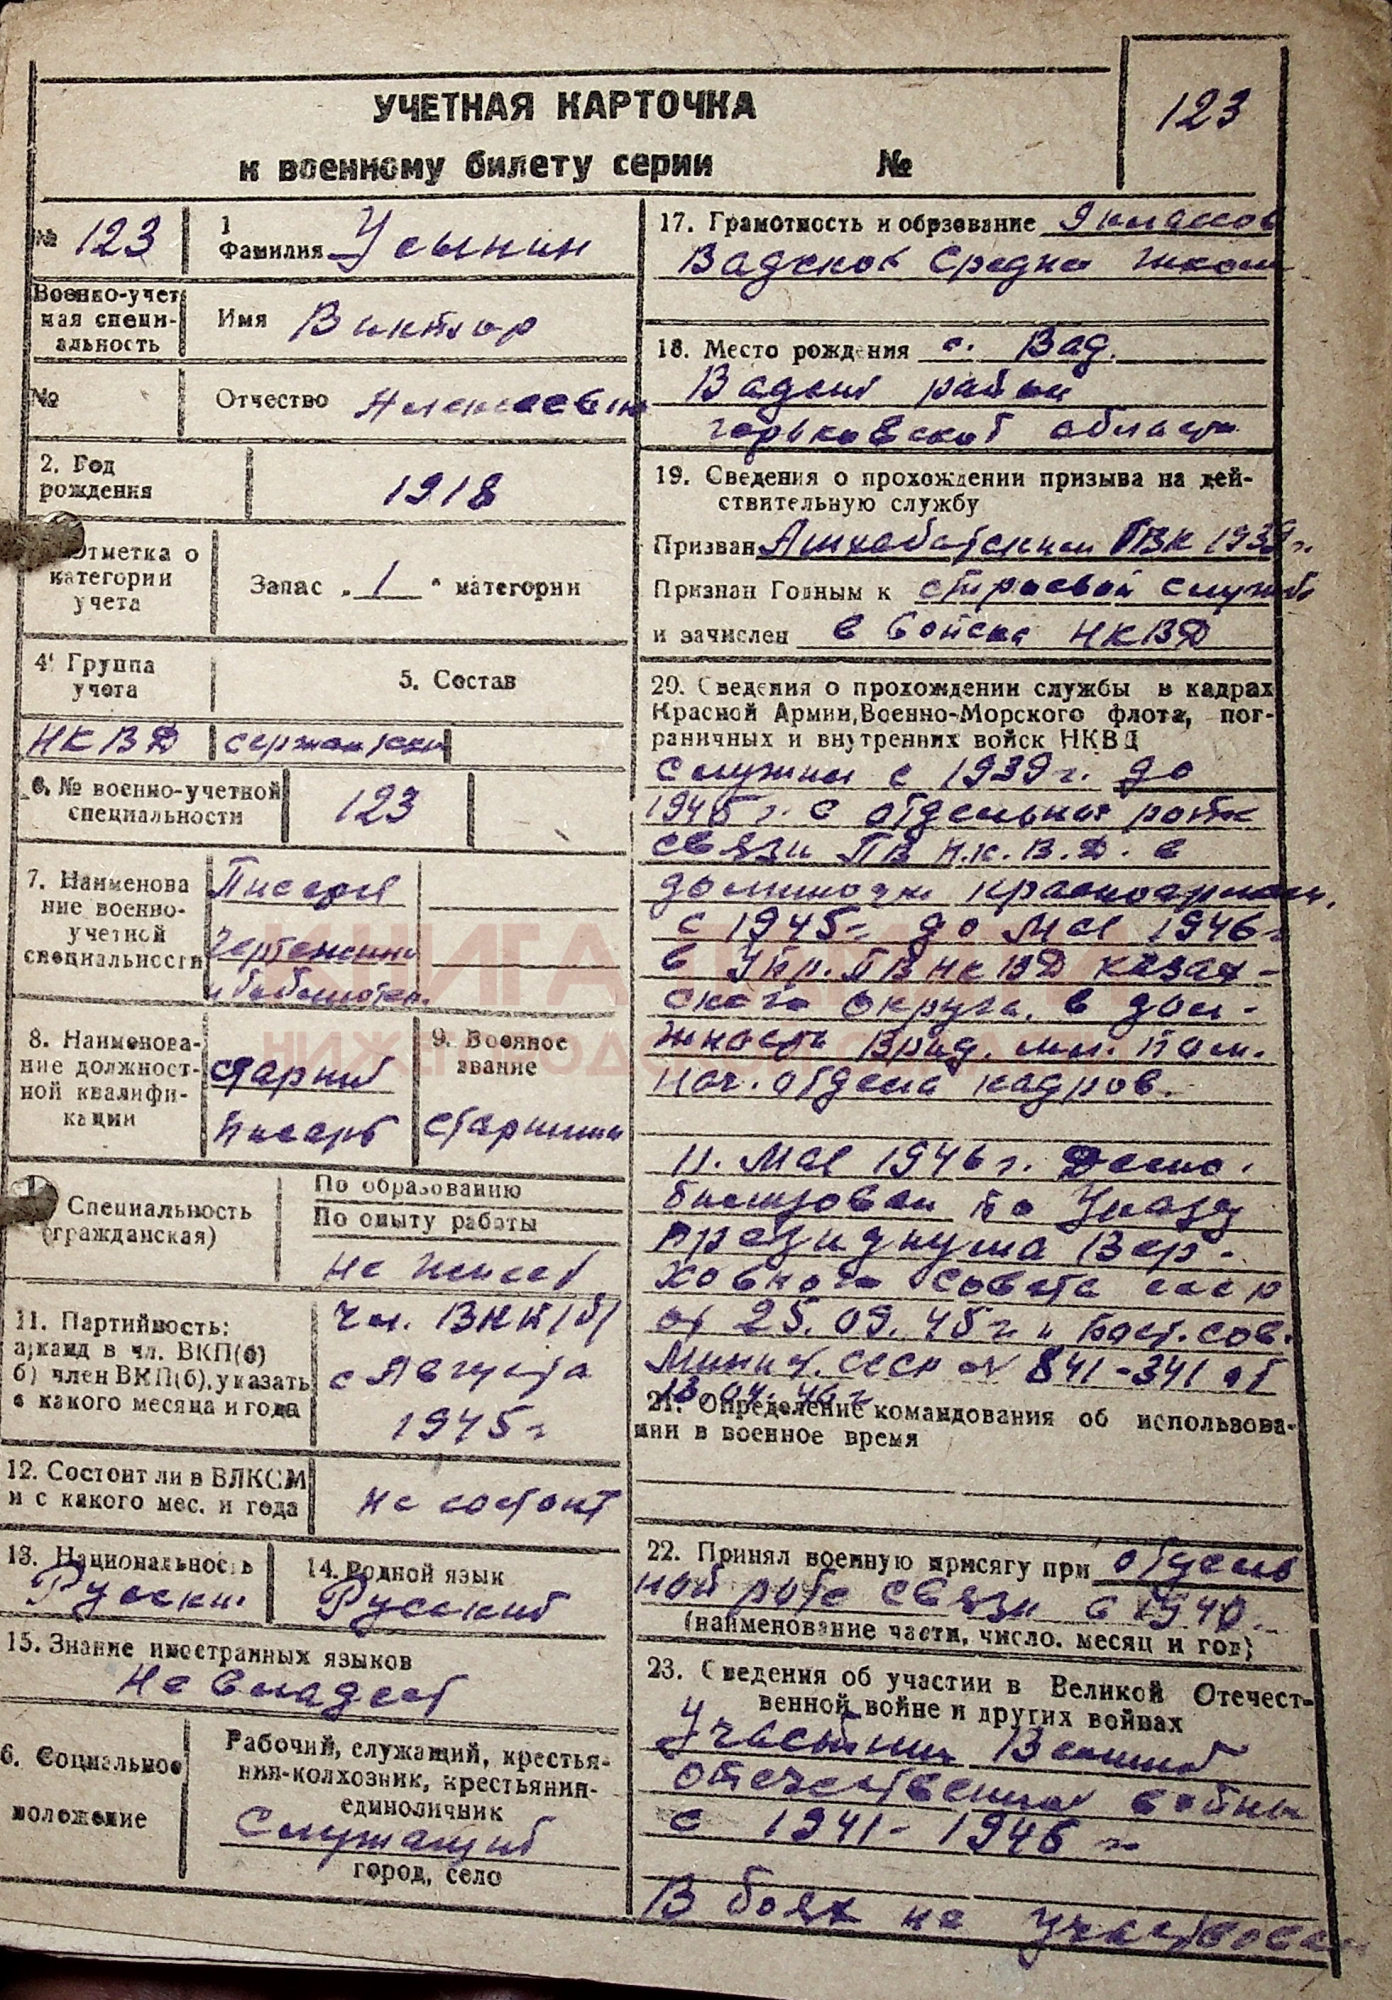 УЧЕТНАЯ КАРТОЧКА
к военному билету серии №
123
№ 123
1
Фамилия Усынин
Военно-учет
ная специ-
альность
Имя Виктор
№
Отчество Алексеевич
2. Год
рождения
1918
Отметка о
категории
учета
Запас „ 1 " категории
4. Группа
учета
5. Состав
НКВД сержантский
6. № военно-учетной
специальности
123
7. Наименова
ние военно-
учетной
специальности
Писаря
чертежники
и библиотек.
8. Наименова-
ние должност-
ной квалифи-
кации
старший
писарь
9. Военное
звание
старшина
Специальность
(гражданская)
По образованию
По опыту работы
Не имеет
11. Партийность:
а)канд в чл. ВКП(б)
б) член ВКП(б), указать
с какого месяца и года
Чл. ВКП(б)
с Августа
1945 г
12. Состоит ли в ВЛКСМ
и с какого мес. и года
не состоит
13. Национальность
Русский
14. Родной язык
Русский
15. Знание иностранных языков
Не владеет
6. Социальное
положение
Рабочий, служащий, крестья-
нин-колхозник, крестьянин-
единоличник
Служащий
город, село
17. Грамотность и обрзование 9 классов
Вадской средней школы
18. Место рождения с. Вад.
Вадский район
Горьковской области
19. Сведения о прохождении призыва на дей-
ствительную службу
Призван Ашхабатским ГВК 1939 г.
Признан Годным к строевой службе
и зачислен в войска НКВД
20. Сведения о прохождении службы в кадрах
Красной Армии, Военно-Морского флота, пог-
раничных и внутренних войск НКВД
служил с 1939 г. до
1945 г. в отдельной роте
связи ПВ Н.К.В.Д. в
должности красноармеец.
с 1945 г. до мая 1946 г
в Упр. ПВ НКВД казах-
ского округа, в дол-
жности Врид. мл. пом.
нач. отдела кадров.
11. Мая 1946 г. Демо-
билизован по Указу
Президиума Вер-
ховного Совета СССР
от 25.09.45 г. и Пост. сов.
Минист. СССР № 841-341 от
21. Определение командования об использова-
нии в военное время
22. Принял военную присягу при отдель
ной роте связи в 1940.
(наименование части, число, месяц и год)
23. Сведения об участии в Великой Отечест-
венной войне и других войнах
Участник Великой
отечественной войны
с 1941-1946 г
В боях не участвовал
КНИГА ПАМЯТИ
НИЖЕГОРОДСКОЙ ОБЛАСТИ